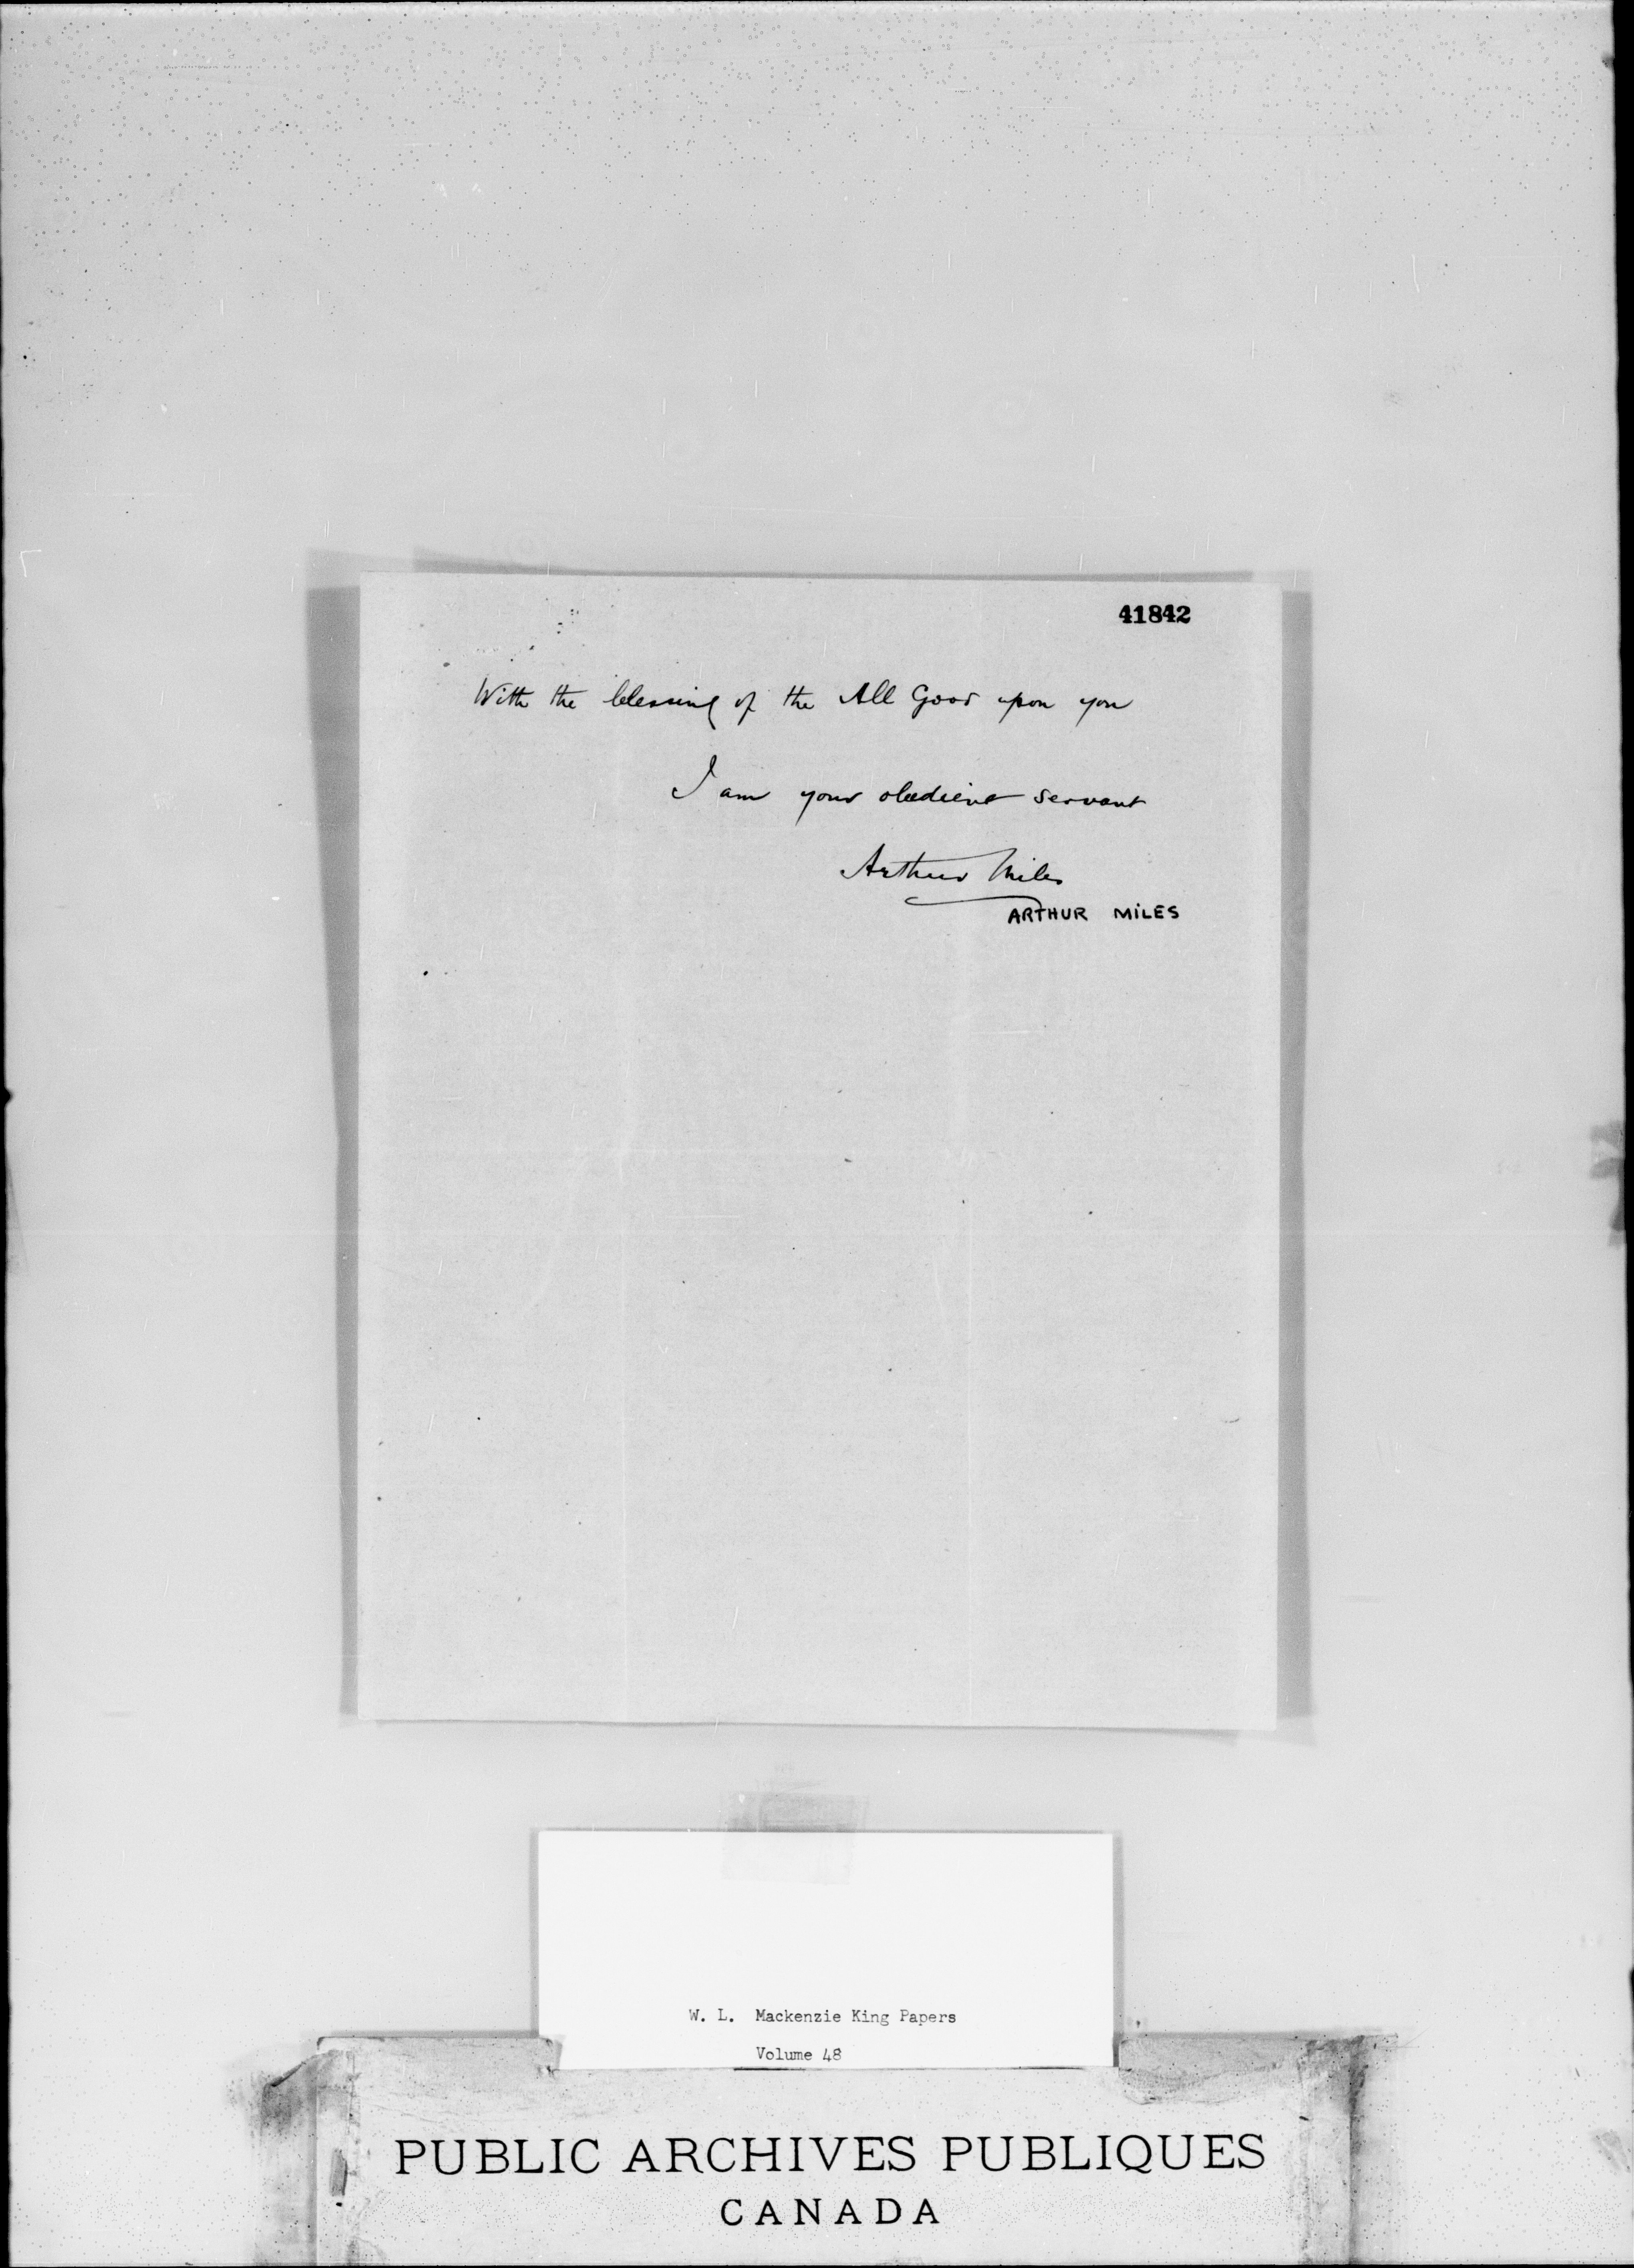 41842
With the blessing of the All Good upon you
I am your obedient servant
Arthur Miles
ARTHUR MILES
W. L. Mackenzie King Papers
Volume 48
PUBLIC ARCHIVES PUBLIQUES
CANADA